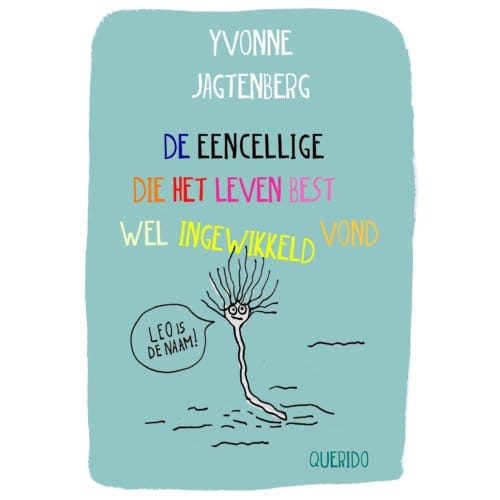 YVONNE
JAGTENBERG
DE EENCELLIGE
DIE HET LEVEN BEST
WEL INGEWIKKELD VOND
LEO IS
DE NAAM!
QUERIDO